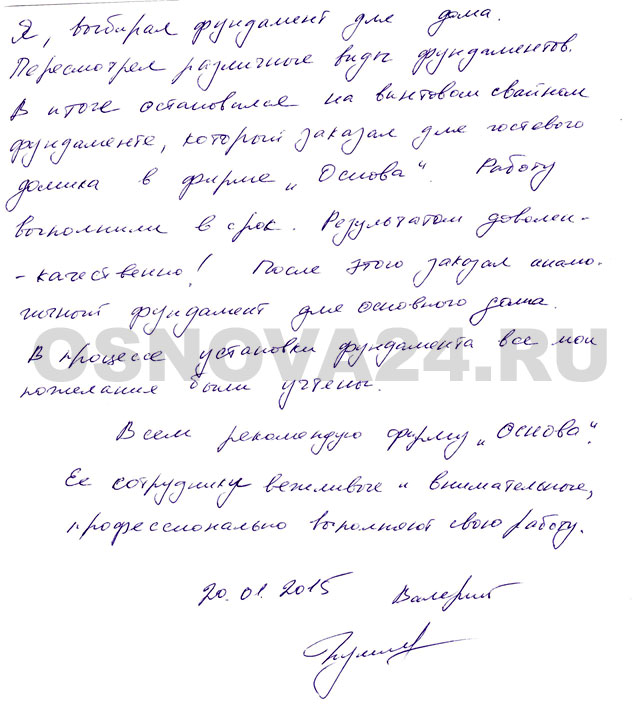 Я, выбирал фундамент для дома.
Пересмотрел различные виды фундаментов.
В итоге остановился на винтовом свайном
фундаменте, который заказал для гостевого
домика в фирме „Основа“. Работу
выполнили в срок. Результатом доволен-
-качественно! После этого заказал анало-
гичный фундамент для основного дома.
OSNOVA24.RU
В процессе установки фундамента все мои
пожелания были учтены.
Всем рекомендую фирму „Основа“.
Ее сотрудники вежливые и внимательные,
профессионально выполняют свою работу.
20.01.2015 Валерий